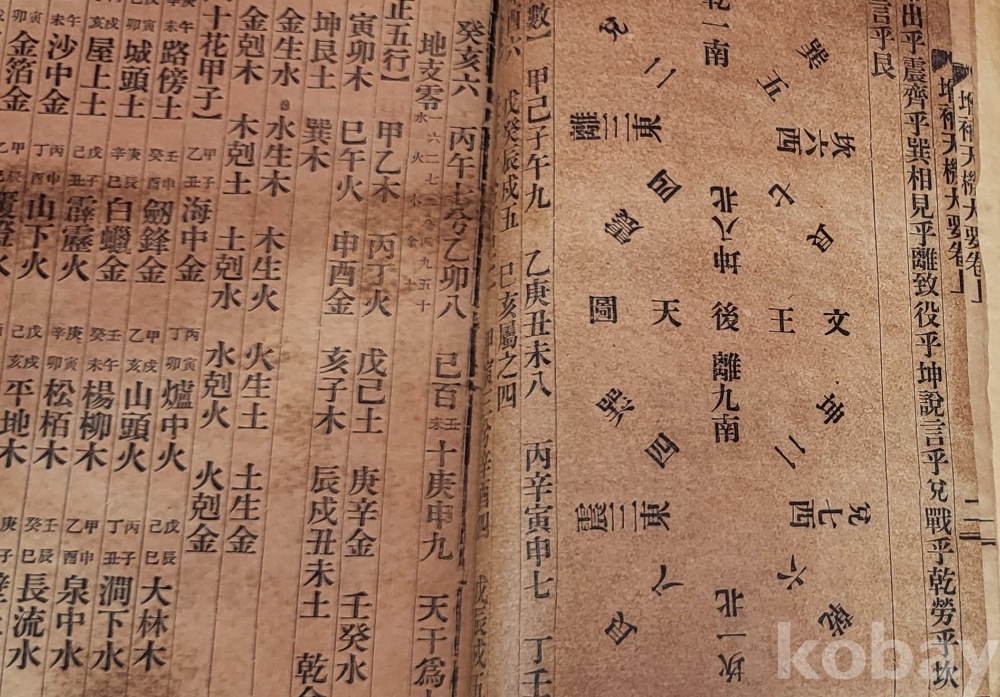 增補天機大要卷上
增補天機大要卷上 二
出乎震齊乎巽相見乎離致役乎坤說言乎兌戰乎乾勞乎坎
言乎艮
巽五
坎六西
艮七
文王
後天
圖
坤八北
一南
兌二
離三東
震四
離九南
坤二
兌七西
乾六
坎一北
艮八
震三東
巽四
數】 甲己子午九 乙庚丑未八 丙辛寅申七 丁壬
戊癸辰戌五 巳亥屬之四
癸亥六 丙午七兮乙卯八 己百 未壬 十庚申九 天干爲
地支零 水一六火二七木三八金四九土五十
正五行】 甲乙木 丙丁火 戊己土 庚辛金 壬癸水
寅卯木 巳午火 申酉金 亥子木 辰戌丑未土 乾金
坤艮土 巽木
金生水 水生木 木生火 火生土 土生金
金剋木 木剋土 土剋水 水剋火 火剋金
十花甲子】 甲子乙丑海中金 丙寅丁卯爐中火 戊辰己巳大林木
庚午辛未路傍土 壬申癸酉劒鋒金 甲戌乙亥山頭火 丙子丁丑澗下水
戊寅己卯城頭土 庚辰辛巳白蠟金 壬午癸未楊柳木 甲申乙酉泉中水
丙戌丁亥屋上土 戊子己丑霹靂火 庚寅辛卯松栢木 壬辰癸巳長流水
甲午乙未沙中金 丙申丁酉山下火 戊戌己亥平地木
金箔金